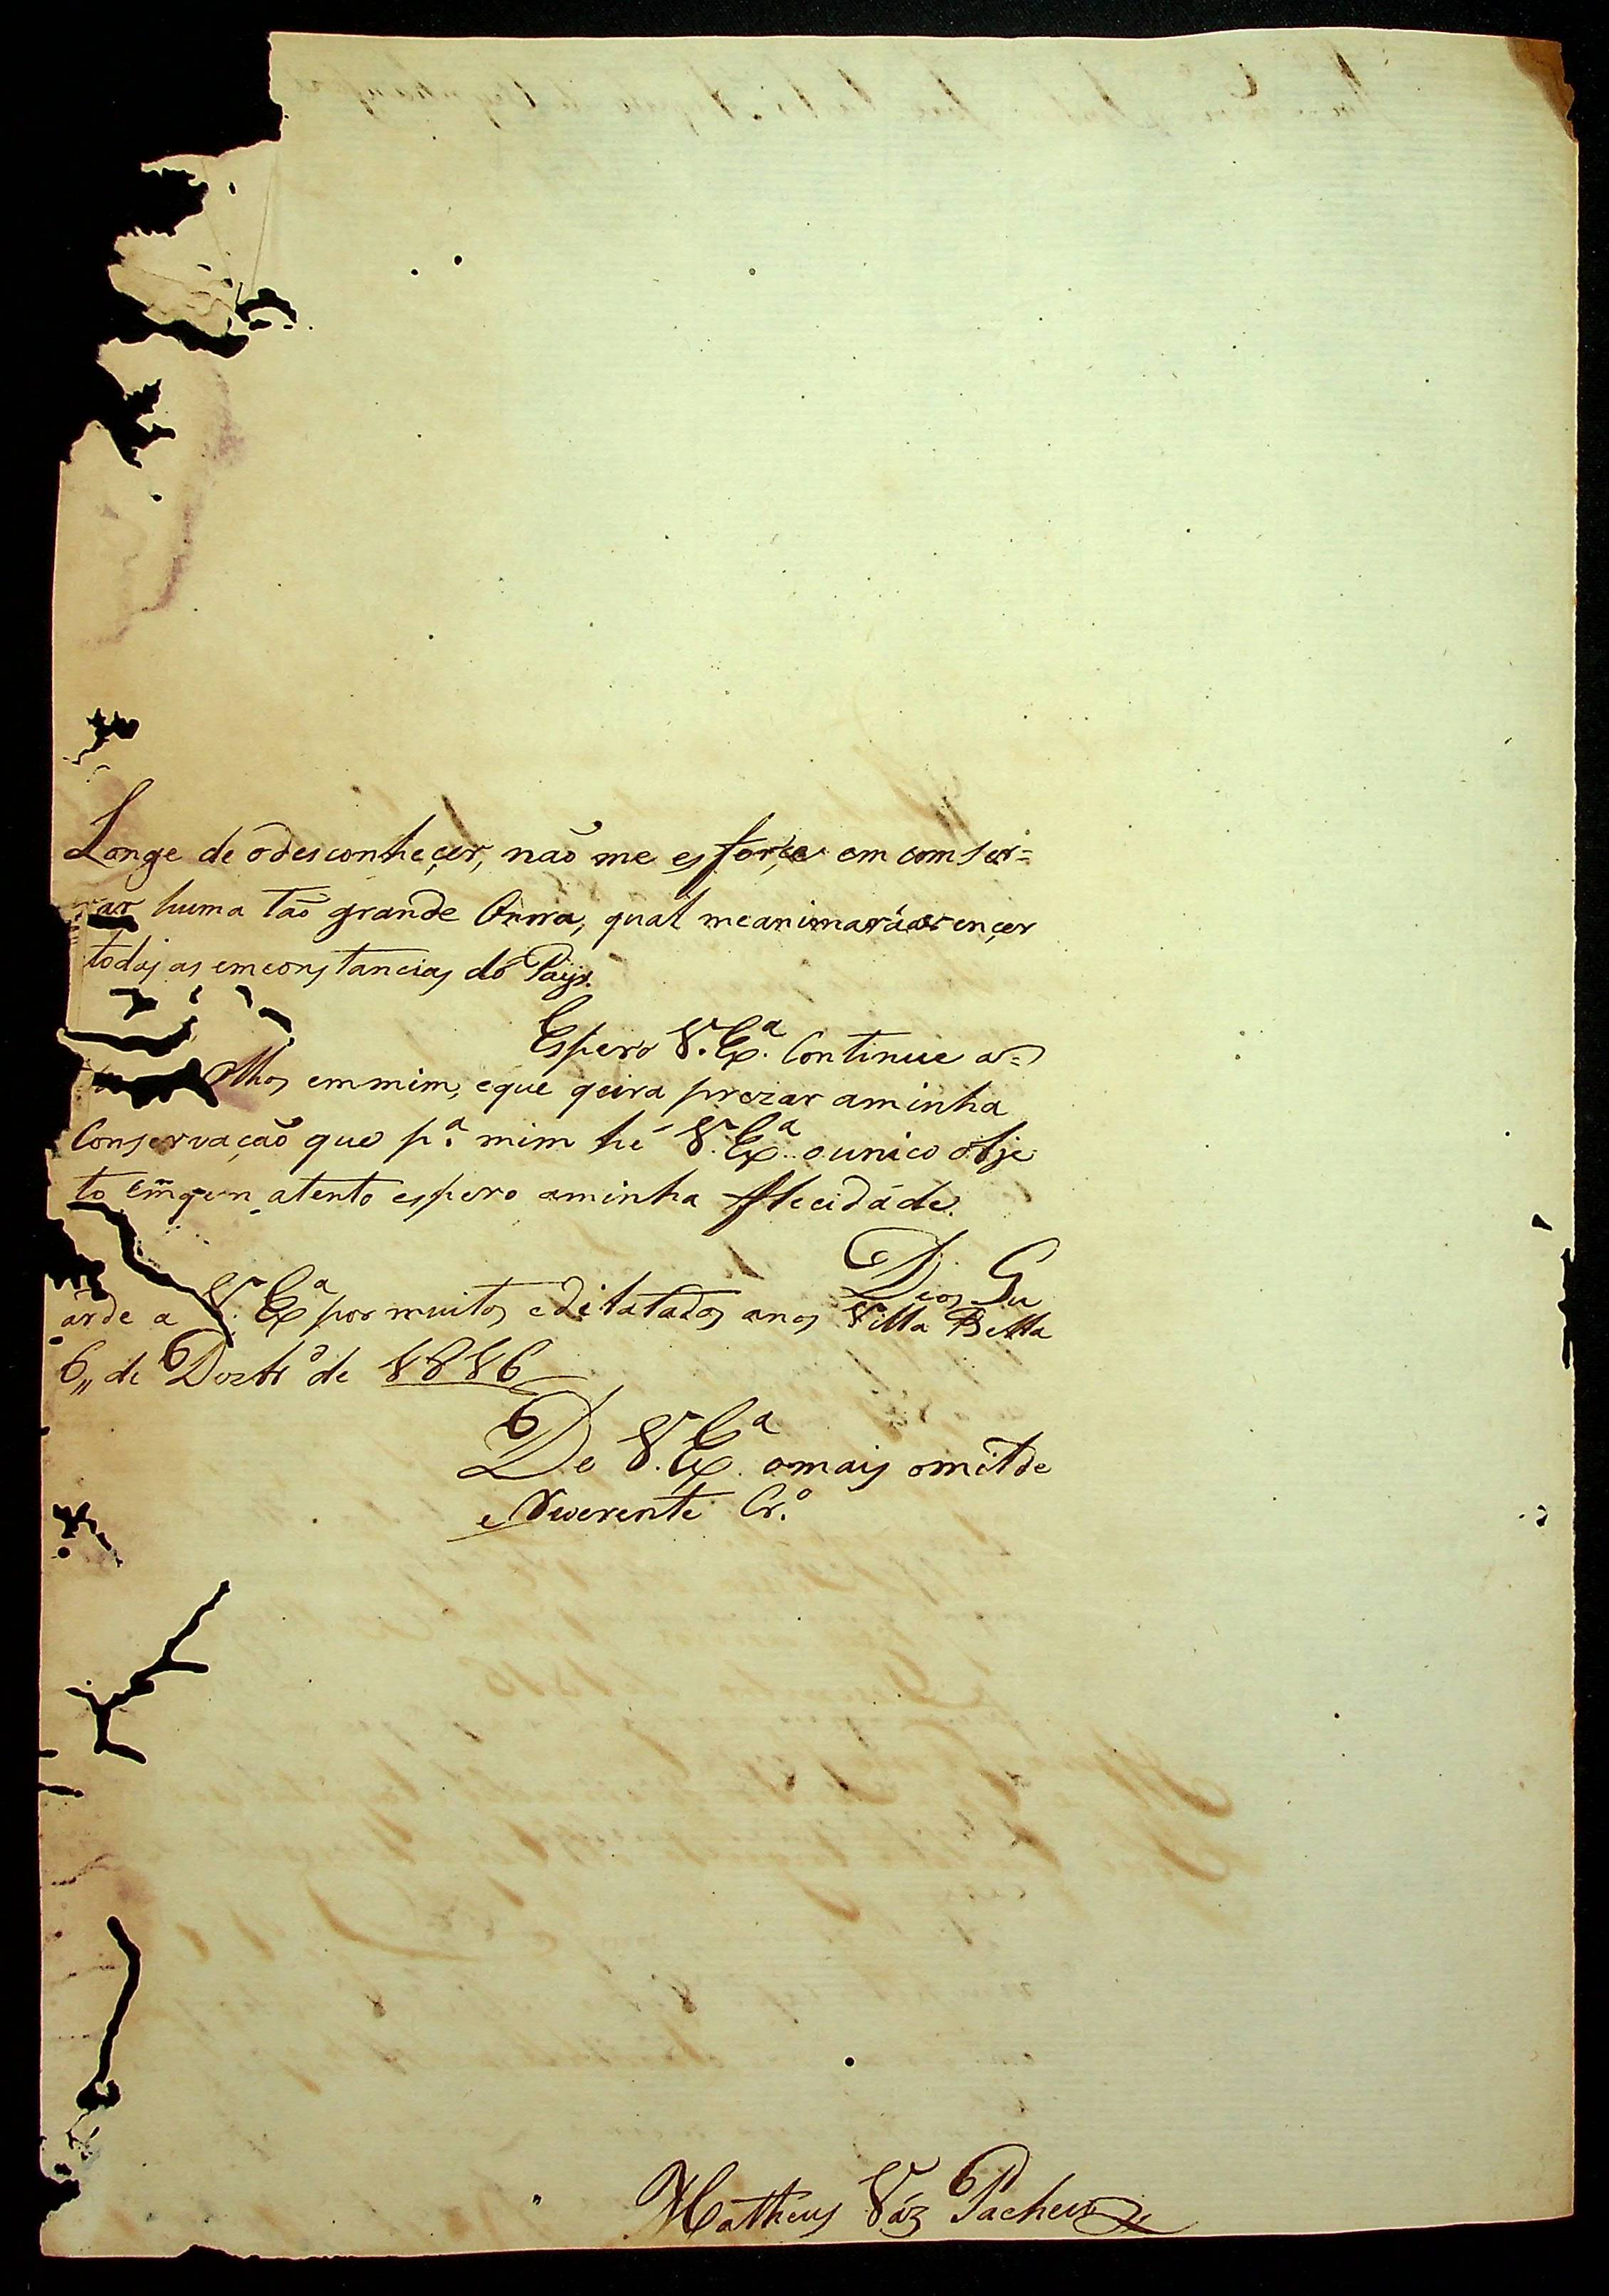 Longe de odesconheçer, naõ me esforçe em comser=
var huma taõ grande Onrra, qual meanimaráavençer
todas as emconstancias do Pays.
Espero V. Exª. Continue a=
olhos emmim, eque qeira prezar aminha
Conservaçaõ que pª. mim hé V. Exª. ounico obje
to emqem atento espero aminha flecidáde.
Deos Gu
arde a V. Exª por muitos edilatados anos Villa Bella
6,, de Dezbrº de 1816
De V. Exª. omais omilde
e Reverente Crº.
Matheus Váz Pacheco